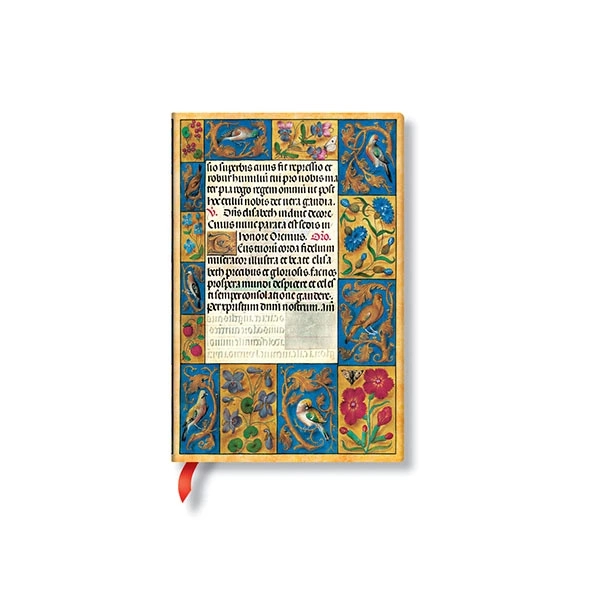 sio superbis anus fit repressio et
robur humiliū tu pro nobis ma
ter pia rogo regem omniū ut post
hoc exiliū nobis det vera gaudia.
V. Dn̄s elisabeth induit decore
Cuius nunc parata est sedis in
honore Oremus. Oro.
Tuorū corda fidelium
miserator illustra et beate elisa
beth precibus et gloriosis. facnos
prospera mundi despicere et celes
ti semper consolatione gaudere.
Per xpristum dnm̄ nostrum. Am̄